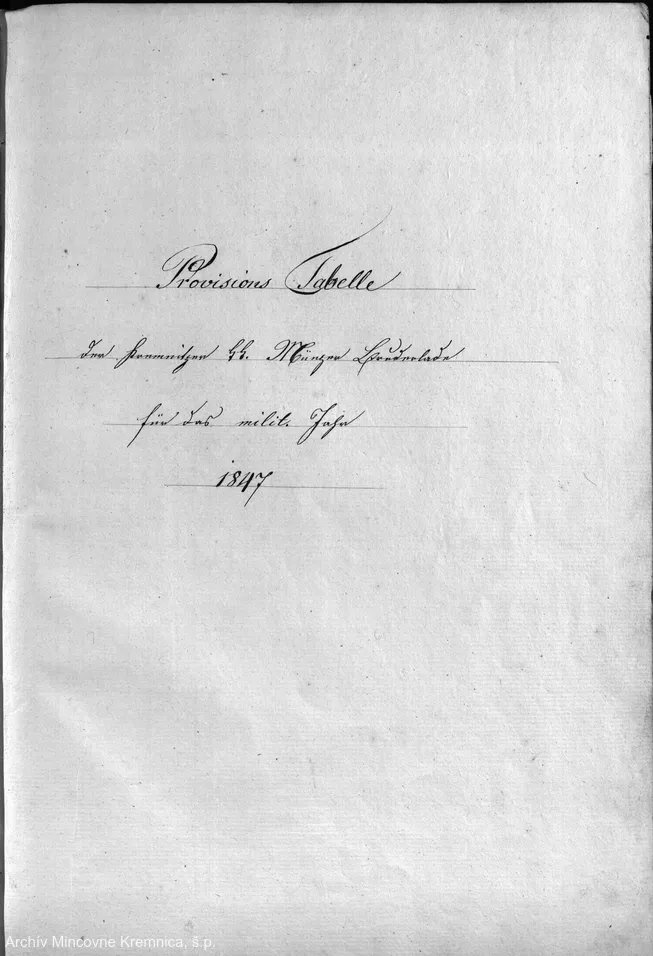 Provisions Tabelle
der Kremnitzer k.k. Münzer Bruderlade
für das milit. Jahr
1847
Archív Mincovne Kremnica, š.p.